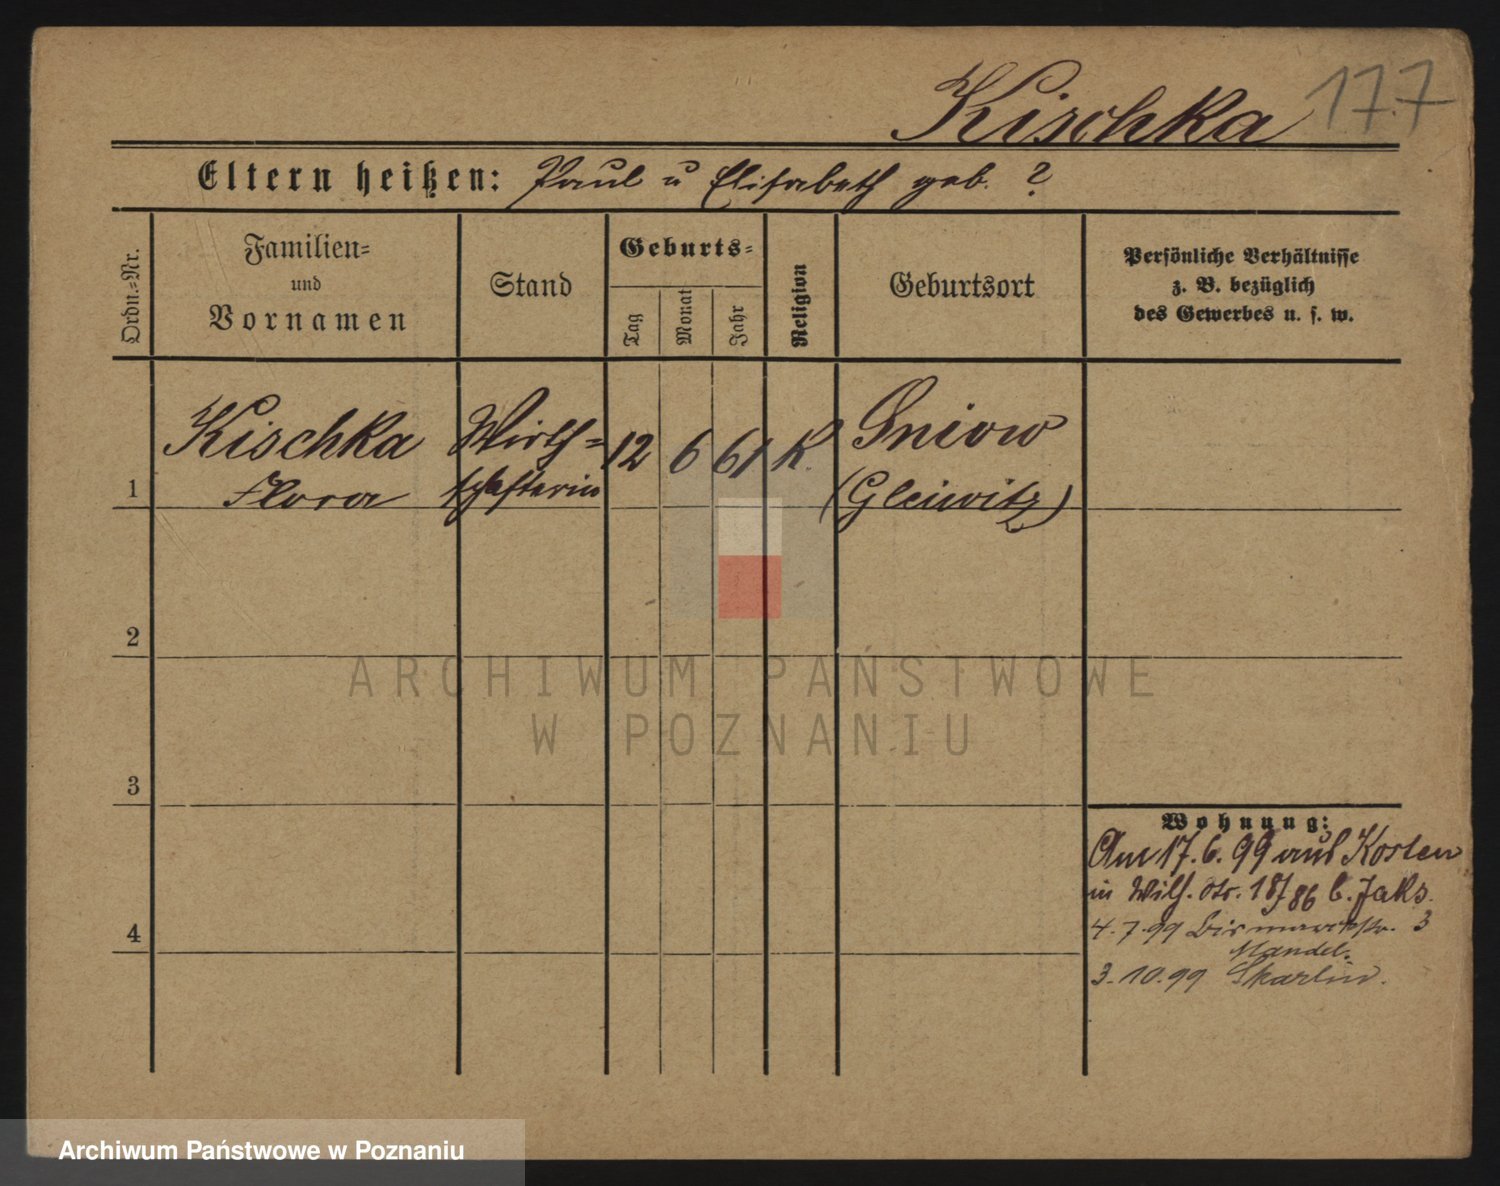 Kischka 177
Eltern heißen: Paul u Elisabeth geb. ?
Ordn.-Nr.
Familien-
und
Vornamen
Stand
Geburts-
Tag
Monat
Jahr
Religion
Geburtsort
Persönliche Verhältnisse
z. B. bezüglich
des Gewerbes u. s. w.
Kischka Wirth- 12 6 61 K. Gniow
1 Flora schafterin (Gleiwitz)
2
3
4
Wohnung:
Am 17.6.99 aus Kosten
in Wilh. Str. b. Jaks.
4.7.99 Bismarckstr. 3
Mandel.
3.10.99 Skarlin.
ARCHIWUM PAŃSTWOWE
W POZNANIU
Archiwum Państwowe w Poznaniu